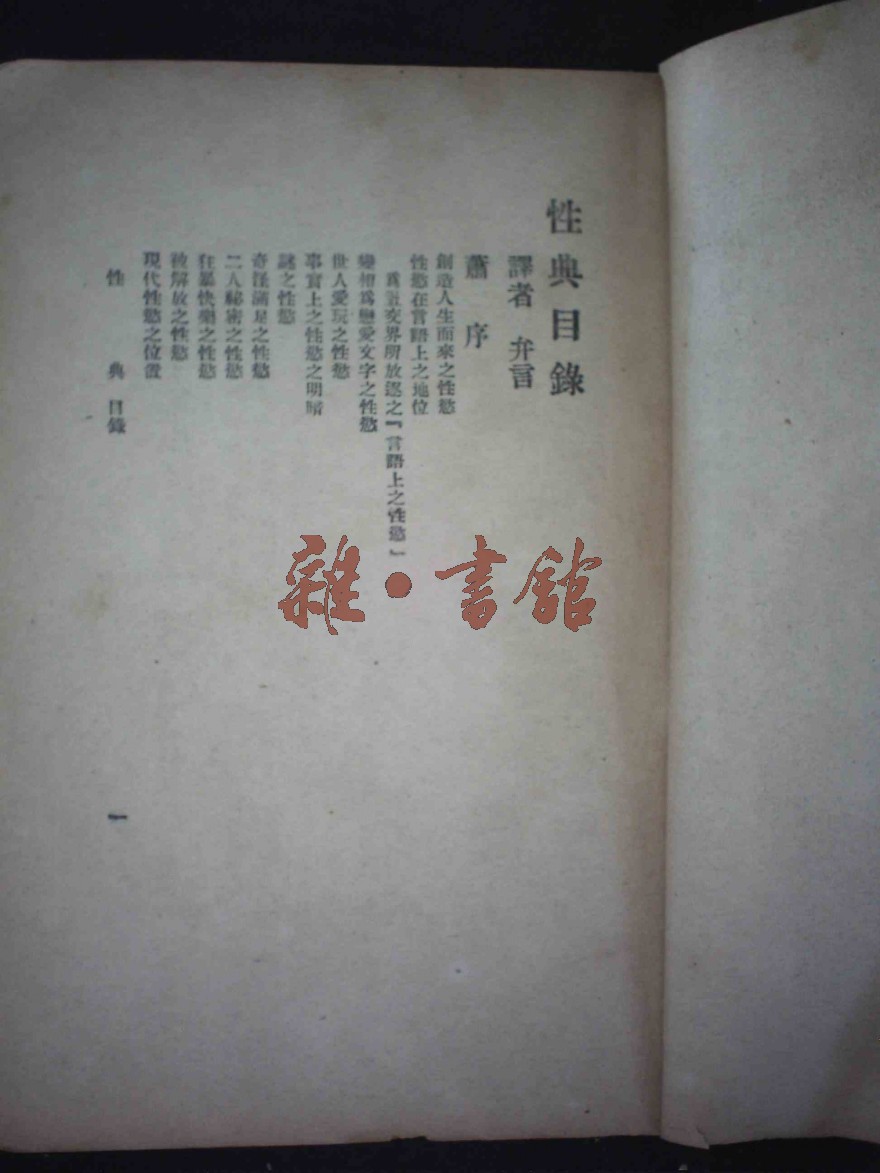 性典目錄
譯者 弁言
蕭序
創造人生而來之性慾
性慾在言語上之地位
爲社交界所放逐之『言語上之性慾』
變相爲戀愛文字之性慾
世人愛玩之性慾
事實上之性慾之明暗
謎之性慾
奇怪滿足之性慾
二人祕密之性慾
狂暴快樂之性慾
被解放之性慾
現代性慾之位置
性典 目錄
一
雜·書館